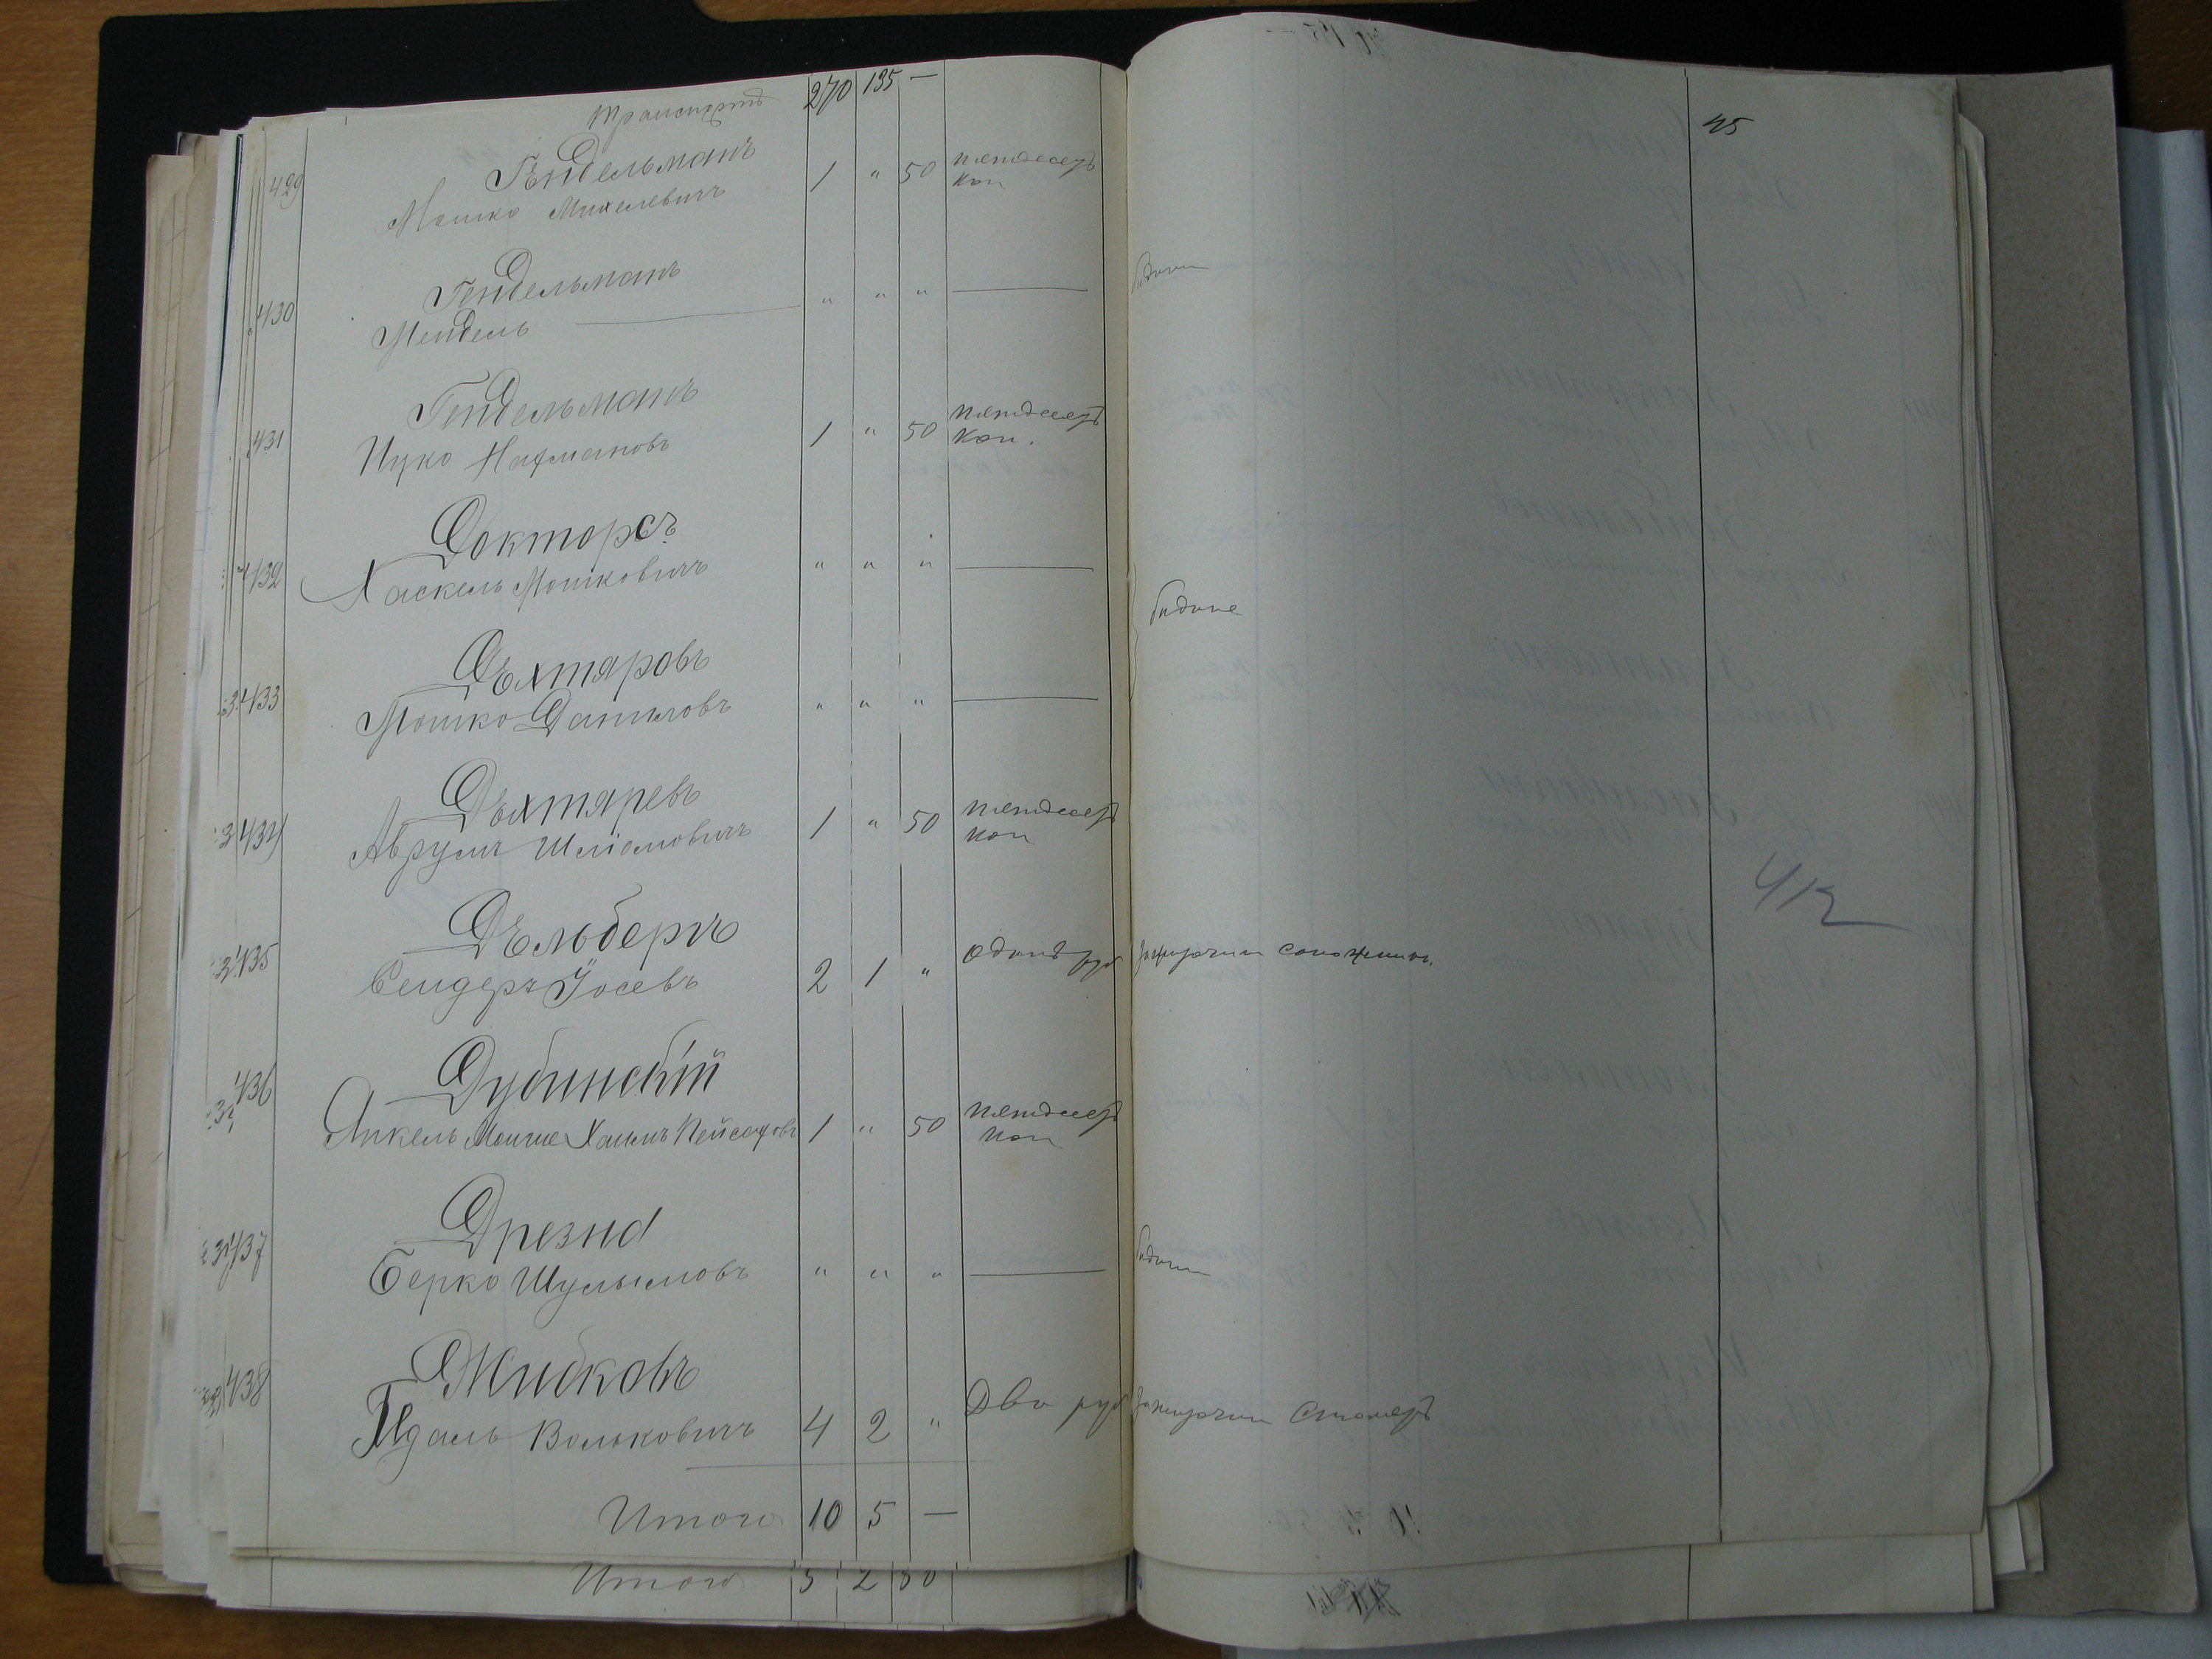 Транспортъ 270 135 —
45
429 Гендельманъ
Мошко Михелевичъ 1 " 50 пятдесятъ коп
430 Гендельманъ
Мендель " " "
431 Гендельманъ
Ицко Нафмановъ 1 " 50 пятдесятъ коп.
432 Докторъ
Хаскель Мошковичъ " " "
бѣдные
433 Дѣхтяровъ
Мошко Даниловъ " " "
434 Дѣхтяревъ
Аврумъ Шліомовичъ 1 " 50 пятдесятъ коп
412
435 Дѣльберъ
Сендеръ Іосевъ 2 1 " одинъ руб
436 Дубинскій
Янкель Мошие Хаимъ Пейсаховъ 1 " 50 пятдесятъ коп
437 Дрезнд
Берко Шулымовъ " " "
438 Жибковъ
Идаль Вольковичъ 4 2 " Два руб
Итого 10 5 —
Итого 5 2 50